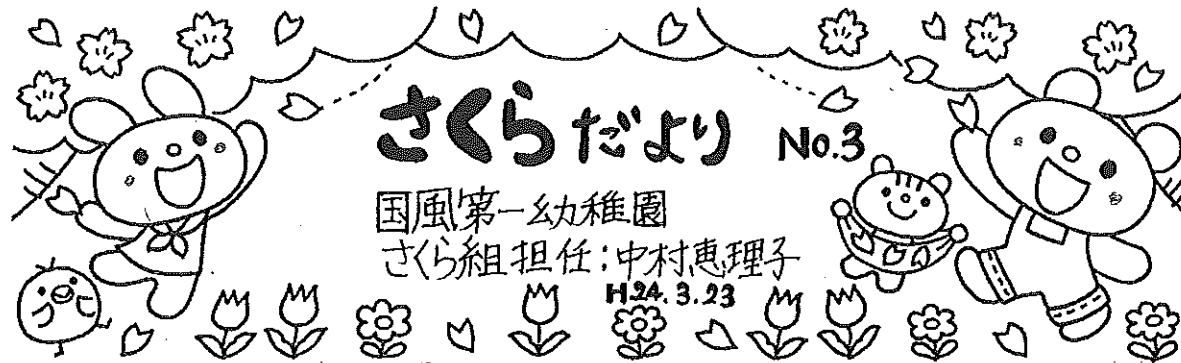 さくらだより No.3
国風第一幼稚園
さくら組担任:中村恵理子
H.24.3.23